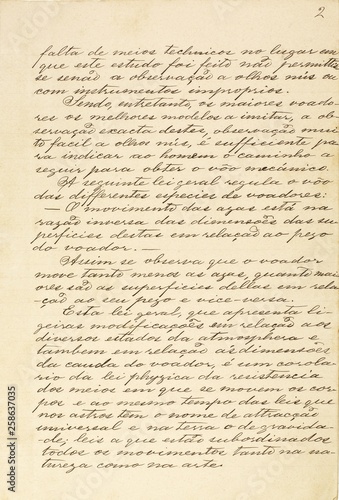 2
falta de meios technicos no lugar em
que este estudo foi feito não permittir
se senão a observação a olhos nús ou
com instrumentos improprios.
Sendo, entretanto, os maiores voado-
res os melhores modelos a imitar, a ob
servação exacta destes, observação mui
to facil a olhos nús, é sufficiente pa
ra indicar ao homem o caminho a
seguir para obter o vôo mecánico.
A seguinte lei geral regula o vôo
das differentes especies de voadores:
— O movimento das azas está na
razão inversa das dimensões das su
perficies destas em relação ao pezo
do voador. —
Assim se observa que o voador
move tanto menos as azas, quanto mai
ores são as superficies dellas em rela
ção ao seu pezo e vice-versa.
Esta lei geral, que apresenta li
geiras modificações em relação aos
diversos estados da atmosphera e
tambem em relação ás dimensões
da cauda do voador, é um corola
rio da lei physica da resistencia
dos meios em que se movem os cor
pos e ao mesmo tempo das leis que
nos astros têm o nome de attracção
universal e na terra o de gravida-
de; leis a que estão subordinados
todos os movimentos tanto na na
tureza como na arte.
Adobe Stock | #258637035